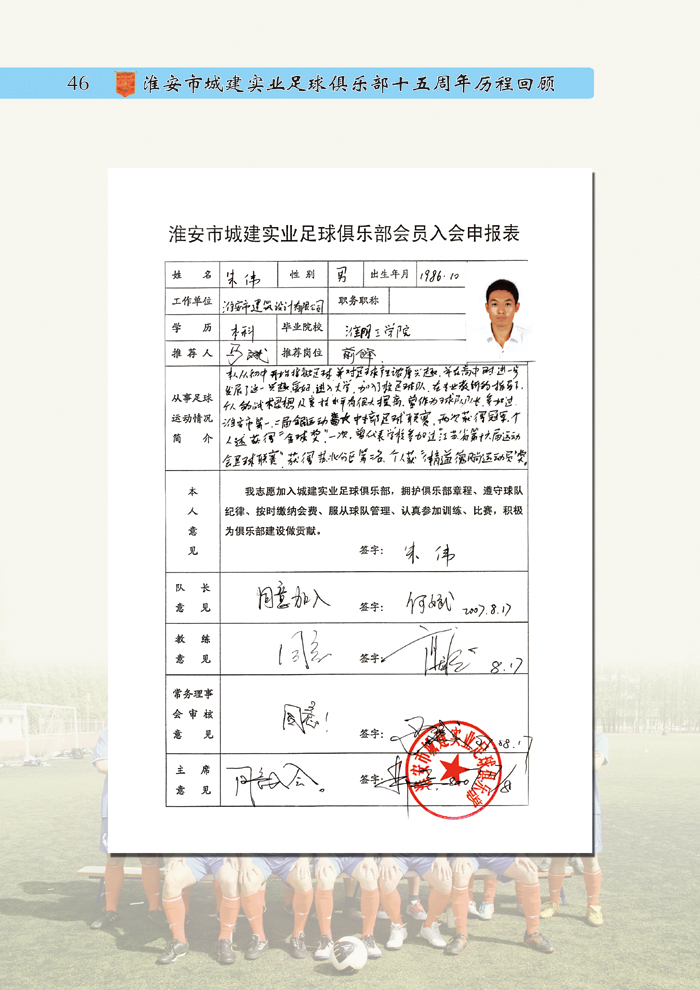 46 淮安市城建实业足球俱乐部十五周年历程回顾
淮安市城建实业足球俱乐部会员入会申报表
姓 名 朱伟 性 别 男 出生年月 1986.10
工作单位 淮安市建筑设计有限公司 职务职称
学 历 本科 毕业院校 淮阴工学院
推荐人 马斌 推荐岗位 前锋
从事足球
运动情况
简 介
本人从初中开始接触足球,并对足球产生浓厚兴趣,并在高中时进一步
发展了这一兴趣爱好,进入大学,加入了校足球队,在专业教师的指导下,
个人的战术思想及竞技水平有很大提高,曾作为球队队长参加过
淮安市第一、二届全运动 足球联赛,两次获得冠军,个
人还获得“金球奖”一次,曾代表学校参加过江苏省第十六届运动
会足球联赛,获得苏北分区第三名,个人获“精神道德风尚运动员”奖。
本
人
意
见
我志愿加入城建实业足球俱乐部,拥护俱乐部章程、遵守球队
纪律、按时缴纳会费、服从球队管理、认真参加训练、比赛,积极
为俱乐部建设做贡献。
签字: 朱伟
队 长
意 见
同意加入 签字: 何斌 2007.8.17
教 练
意 见
同意 签字: 8.17
常务理事
会 审 核
意 见
同意! 签字: 8.17
主 席
意 见
同意入会。 签字:
淮安市城建实业足球俱乐部